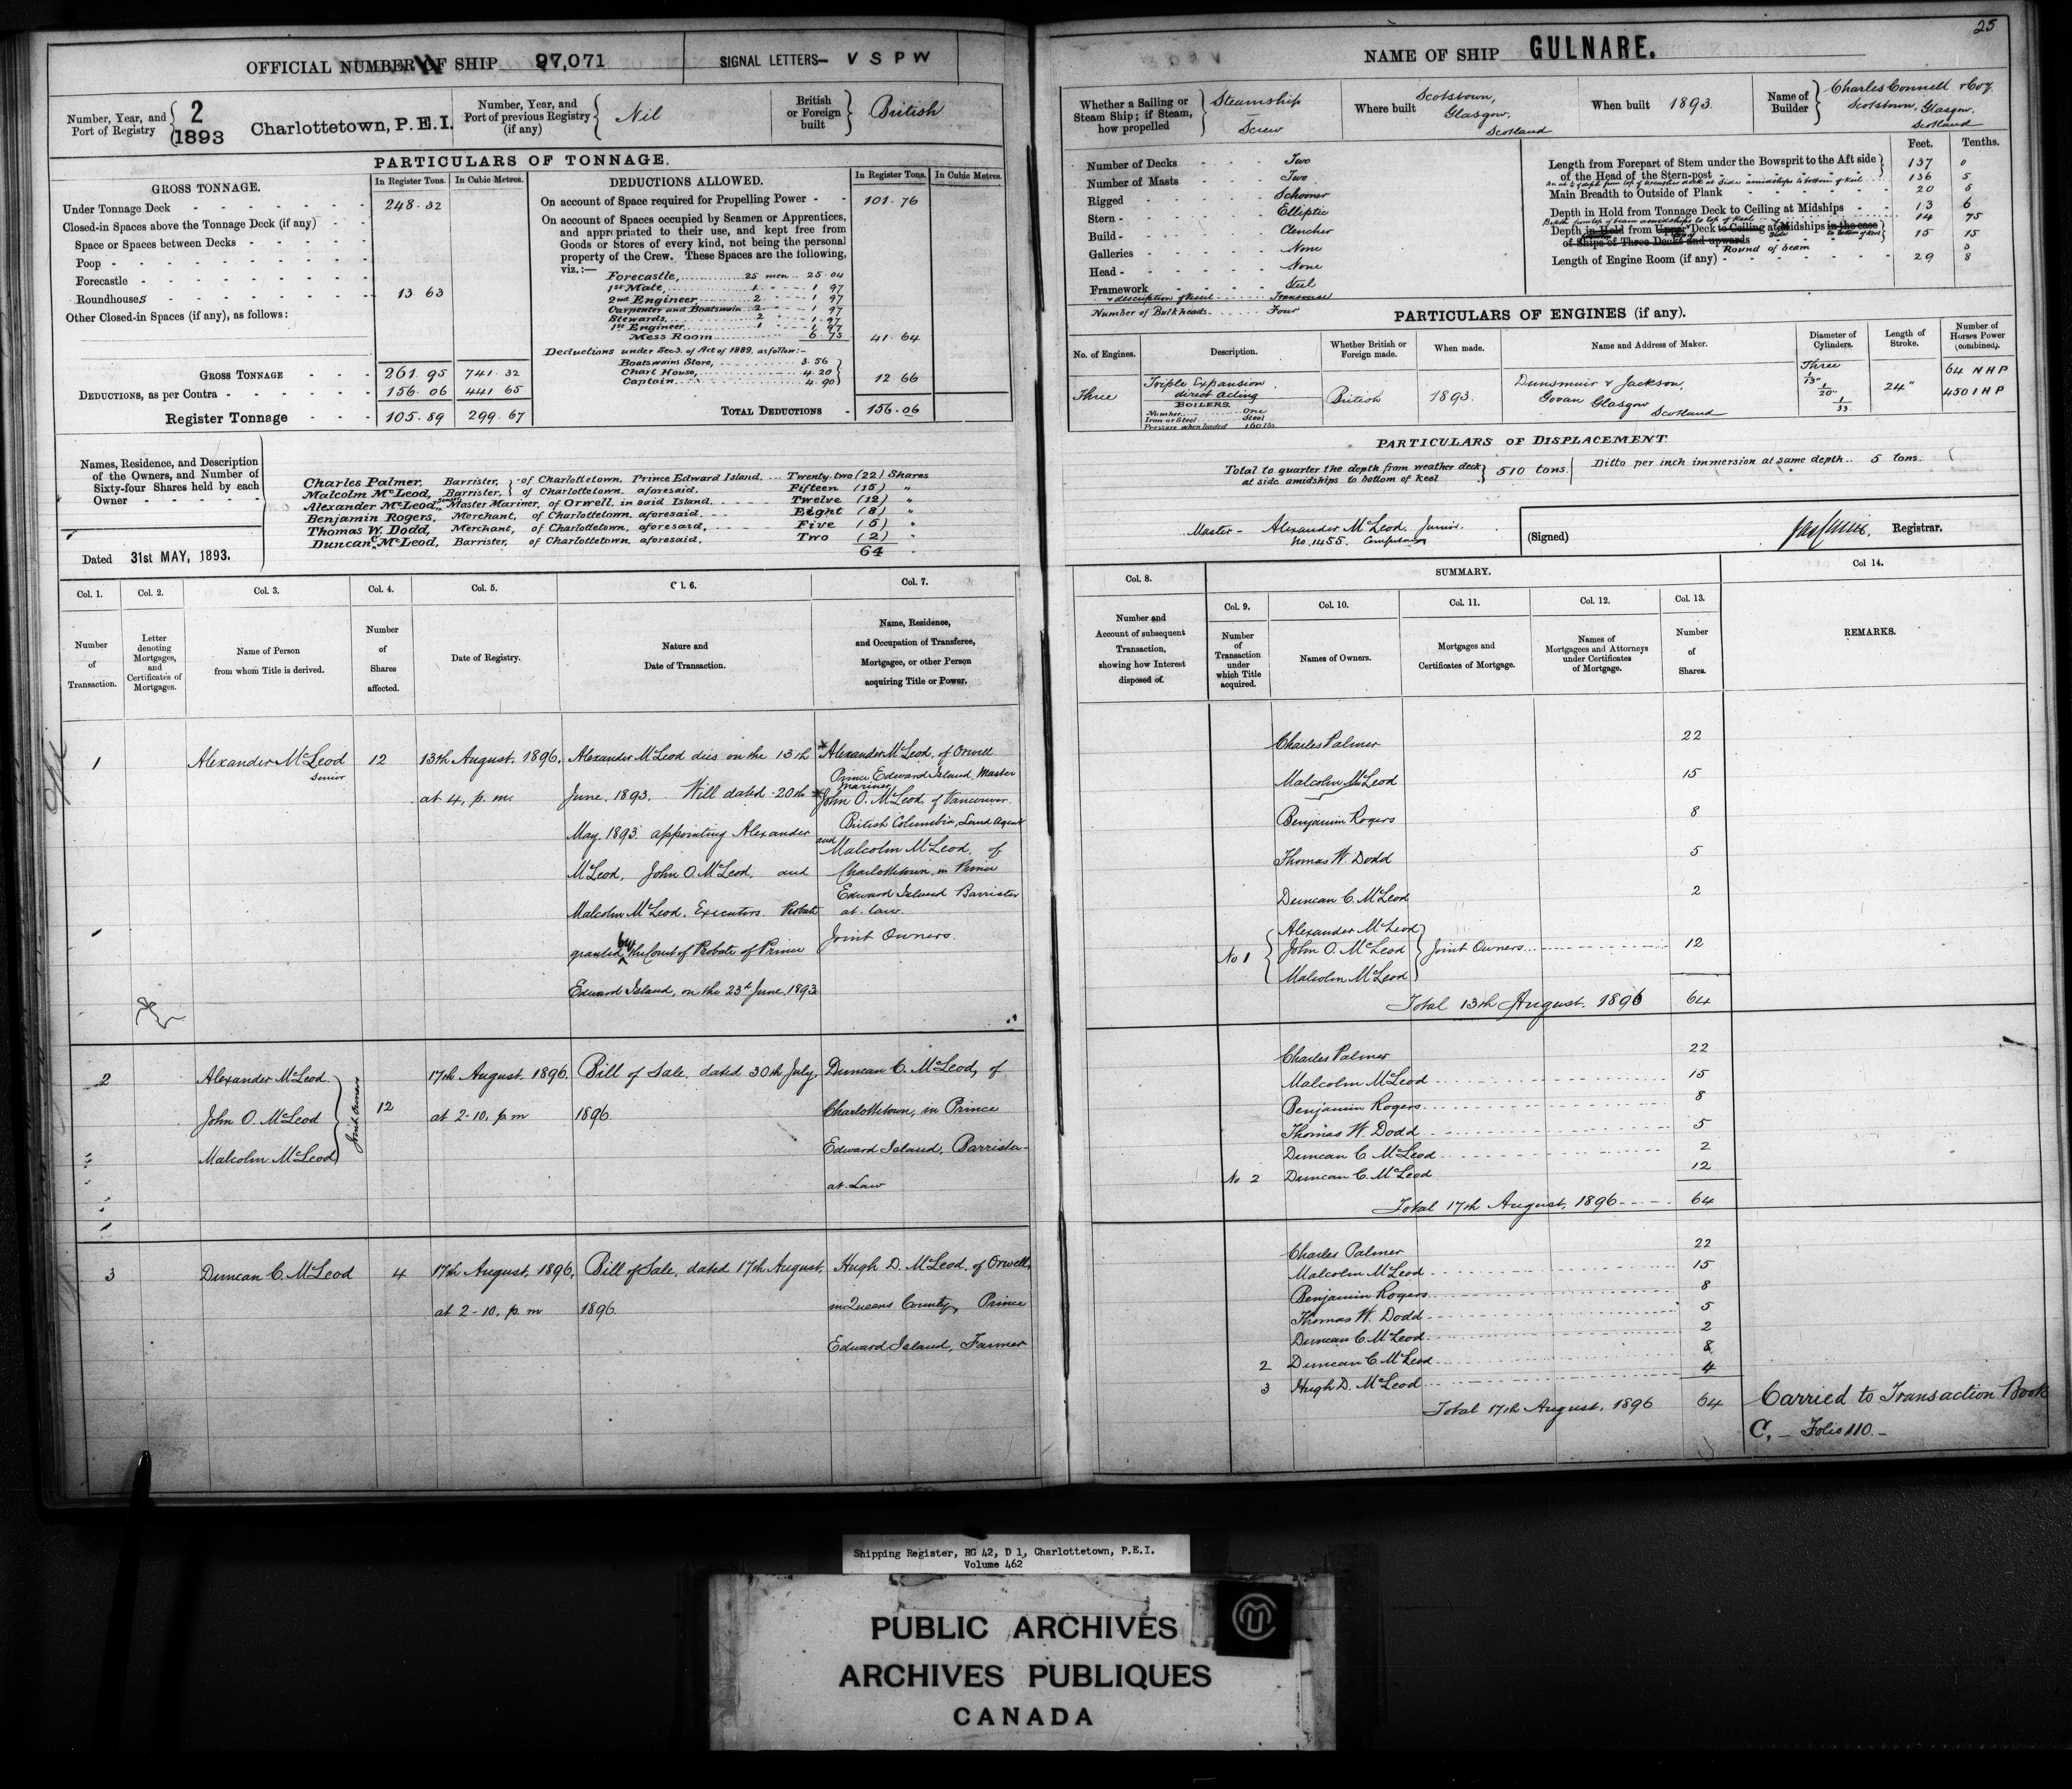 25
OFFICIAL NUMBER OF SHIP 97,071
SIGNAL LETTERS- V S P W
Number, Year, and Port of Registry
2
1893
Charlottetown, P.E.I.
Number, Year, and Port of previous Registry (if any)
Nil
British or Foreign built
British
PARTICULARS OF TONNAGE.
GROSS TONNAGE. In Register Tons. In Cubic Metres.
Under Tonnage Deck 248.32
Closed-in Spaces above the Tonnage Deck (if any)
Space or Spaces between Decks
Poop
Forecastle
Roundhouses 13 63
Other Closed-in Spaces (if any), as follows:
GROSS TONNAGE 261.95 741.32
DEDUCTIONS, as per Contra 156.06 441 65
Register Tonnage 105.89 299.67
DEDUCTIONS ALLOWED. In Register Tons. In Cubic Metres.
On account of Space required for Propelling Power 101.76
On account of Spaces occupied by Seamen or Apprentices,
and appropriated to their use, and kept free from
Goods or Stores of every kind, not being the personal
property of the Crew. These Spaces are the following,
viz.:—
Forecastle, 25 men 25.04
1st Mate 1 1 97
2nd Engineer 2 1 97
Carpenter and Boatswain 2 1 97
Stewards 2 1 97
1st Engineer 1 1 97
Mess Room 6 75
41 64
Deductions under Sec 3. of Act of 1889, as follow:-
Boatswains Store, 3.56
Chart House, 4.20
Captain 4.90
12 66
TOTAL DEDUCTIONS 156.06
Names, Residence, and Description
of the Owners, and Number of
Sixty-four Shares held by each
Owner
Dated 31st MAY, 1893.
Charles Palmer, Barrister, of Charlottetown. Prince Edward Island. Twenty-two (22) Shares
Malcolm McLeod, Barrister, of Charlottetown. aforesaid. Fifteen (15) "
Alexander McLeod, Senior, Master Mariner, of Orwell, in said Island. Twelve (12) "
Benjamin Rogers, Merchant, of Charlottetown. aforesaid. Eight (8) "
Thomas W. Dodd, Merchant, of Charlottetown, aforesaid, Five (5) "
Duncan C. McLeod, Barrister, of Charlottetown. aforesaid. Two (2) "
64
Col. 1. Col. 2. Col. 3. Col. 4. Col. 5. Col. 6. Col. 7.
Number of Transaction.
Letter denoting Mortgages, and Certificates of Mortgages.
Name of Person from whom Title is derived.
Number of Shares affected.
Date of Registry.
Nature and Date of Transaction.
Name, Residence, and Occupation of Transferee, Mortgagee, or other Person acquiring Title or Power.
1
Alexander McLeod
Senior
12
13th August. 1896,
at 4, p. m.
Alexander McLeod dies on the 13th
June. 1893. Will dated 20th
May. 1893. appointing Alexander
McLeod, John O. McLeod, and
Malcolm McLeod. Executors. Probate
granted by the Court of Probate of Prince
Edward Island, on the 23d June. 1893
Alexander McLeod, of Orwell
Prince Edward Island, Master
Mariner
John O. McLeod, of Vancouver.
British Columbia, Land Agent
and
Malcolm McLeod, of
Charlottetown, in Prince
Edward Island Barrister
at. law.
Joint Owners.
2
Alexander McLeod
John O. McLeod
Malcolm McLeod
Joint Owners
12
17th August. 1896.
at 2-10, p.m
Bill of Sale. dated 30th July,
1896.
Duncan C. McLeod, of
Charlottetown, in Prince
Edward Island, Barrister-
at. Law
3
Duncan C. McLeod
4
17th August, 1896,
at 2-10. p. m
Bill of Sale, dated 17th August,
1896
Hugh D. McLeod, of Orwell,
in Queens County, Prince
Edward Island, Farmer
NAME OF SHIP GULNARE.
Whether a Sailing or Steam Ship; if Steam, how propelled
Steamship
Screw
Where built
Scotstown,
Glasgow,
Scotland
When built 1893.
Name of Builder
Charles Connell & Coy.
Scotstown, Glasgow.
Scotland
Number of Decks Two
Number of Masts Two
Rigged Schooner
Stern Elliptic
Build Clencher
Galleries None
Head None
Framework Steel
& description of Keel Transverse
Number of Bulkheads Four
Feet. Tenths.
Length from Forepart of Stem under the Bowsprit to the Aft side
of the Head of the Stern-post 137 0
136 5
Main Breadth to Outside of Plank 20 5
Depth in Hold from Tonnage Deck to Ceiling at Midships 13 6
Depth from top of beam amidships to top of Keel 14 75
Depth in Hold from Upper Deck to Ceiling at Midships in the case
of Ships of Three Decks and upwards 15 15
Round of beam 3
Length of Engine Room (if any) 29 8
PARTICULARS OF ENGINES (if any).
No. of Engines. Description. Whether British or Foreign made. When made. Name and Address of Maker. Diameter of Cylinders. Length of Stroke. Number of Horses Power (combined).
Three
Triple Expansion
direct acting
BOILERS
Number One
Iron or Steel Steel
Pressure when loaded 160 lbs
British
1893.
Dunsmuir & Jackson,
Govan Glasgow
Scotland
Three
1/13"
1/20"
1/33
24"
64 N H P
450 I H P
PARTICULARS OF DISPLACEMENT.
Total to quarter the depth from weather deck
at side amidships to bottom of Keel
510 tons.
Ditto per inch immersion at same depth 5 tons.
Master - Alexander McLeod, Junior.
(Signed) Registrar.
Col. 8. SUMMARY. Col 14.
Col. 9. Col. 10. Col. 11. Col. 12. Col. 13.
Number and Account of subsequent Transaction, showing how Interest disposed of.
Number of Transaction under which Title acquired.
Names of Owners.
Mortgages and Certificates of Mortgage.
Names of Mortgagees and Attorneys under Certificates of Mortgage.
Number of Shares.
REMARKS.
Charles Palmer 22
Malcolm McLeod 15
Benjamin Rogers 8
Thomas W. Dodd 5
Duncan C. McLeod 2
No 1
Alexander McLeod
John O. McLeod
Malcolm McLeod
Joint Owners 12
Total 13th August. 1896 64
Charles Palmer 22
Malcolm McLeod 15
Benjamin Rogers 8
Thomas W. Dodd 5
Duncan C McLeod 2
No 2 Duncan C. McLeod 12
Total 17th August, 1896 64
Charles Palmer 22
Malcolm McLeod 15
Benjamin Rogers 8
Thomas W. Dodd 5
Duncan C McLeod 2
2 Duncan C. McLeod 8
3 Hugh D. McLeod 4
Total 17th August. 1896 64
Carried to Transaction Book
C, - Folio 110. -
Shipping Register, RG 42, D 1, Charlottetown, P.E.I.
Volume 462
PUBLIC ARCHIVES
ARCHIVES PUBLIQUES
CANADA